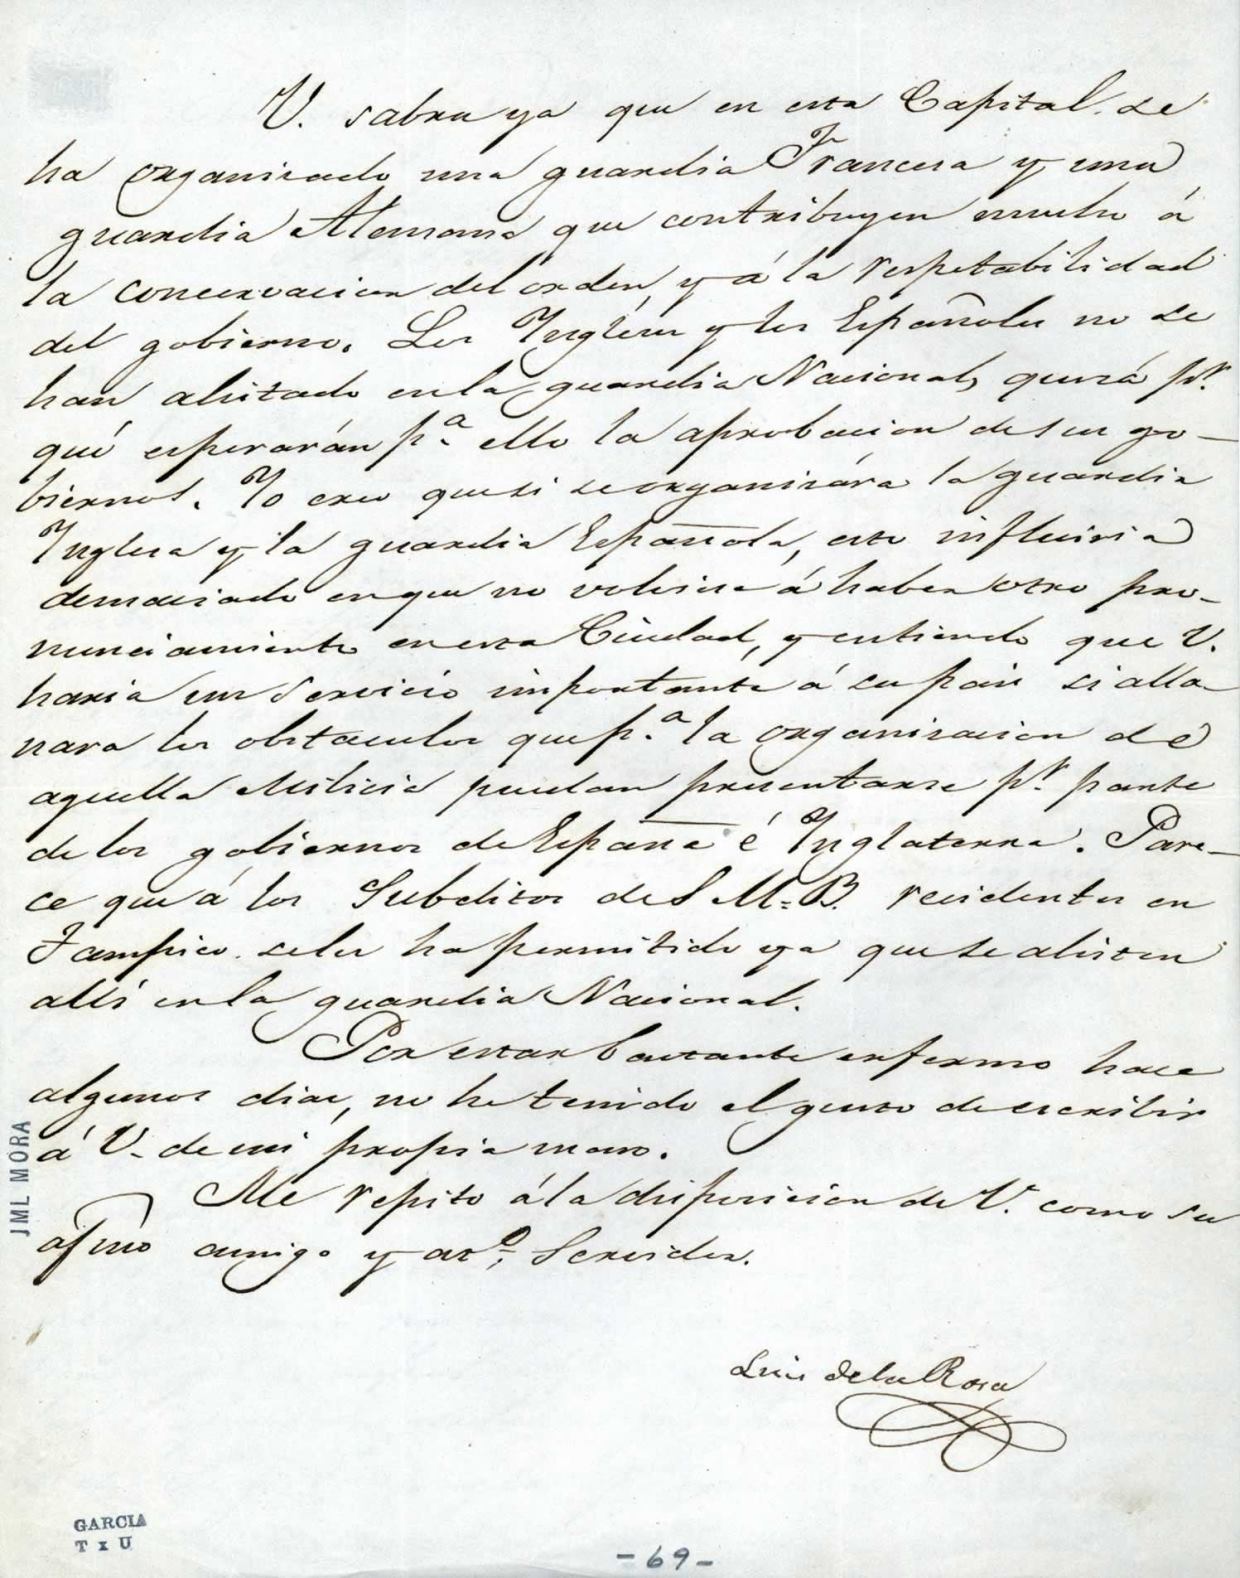 V. sabra ya que en esta Capital se
ha organizado una guardia Francesa y una
guardia Alemana que contribuyen mucho á
la concervacion del orden, y á la respetabilidad
del gobierno. Los Ingléses y los Españoles no se
han alistado en la guardia Nacional, quizá pr.
qué esperarán pa. ello la aprobacion de sus go-
biernos. Yo creo que si se organizára la guardia
Inglesa y la guardia Española, esto influiria
demaciado en que no volviese á haber otro pro-
nunciamiento en esta Ciudad, y entiendo que V.
haria un servicio importante á su pais si alla-
nara los obstaculos que pa. la organizacion de
aquella Milicia puedan presentarse pr. parte
de los gobiernos de España é Inglaterra. Pare-
ce que á los Subditos de S. M. B. recidentes en
Tampico se les ha permitido ya que se alisten
allí en la guardia Nacional.
Por estar bastante enfermo hace
algunos dias, no he tenido el gusto de escribir
á V. de mi propia mano.
Me repito á la disposicion de V. como su
afmo amigo y ato. Servidor.
Luis de la Rosa
JML MORA
GARCIA
T x U
- 69 -